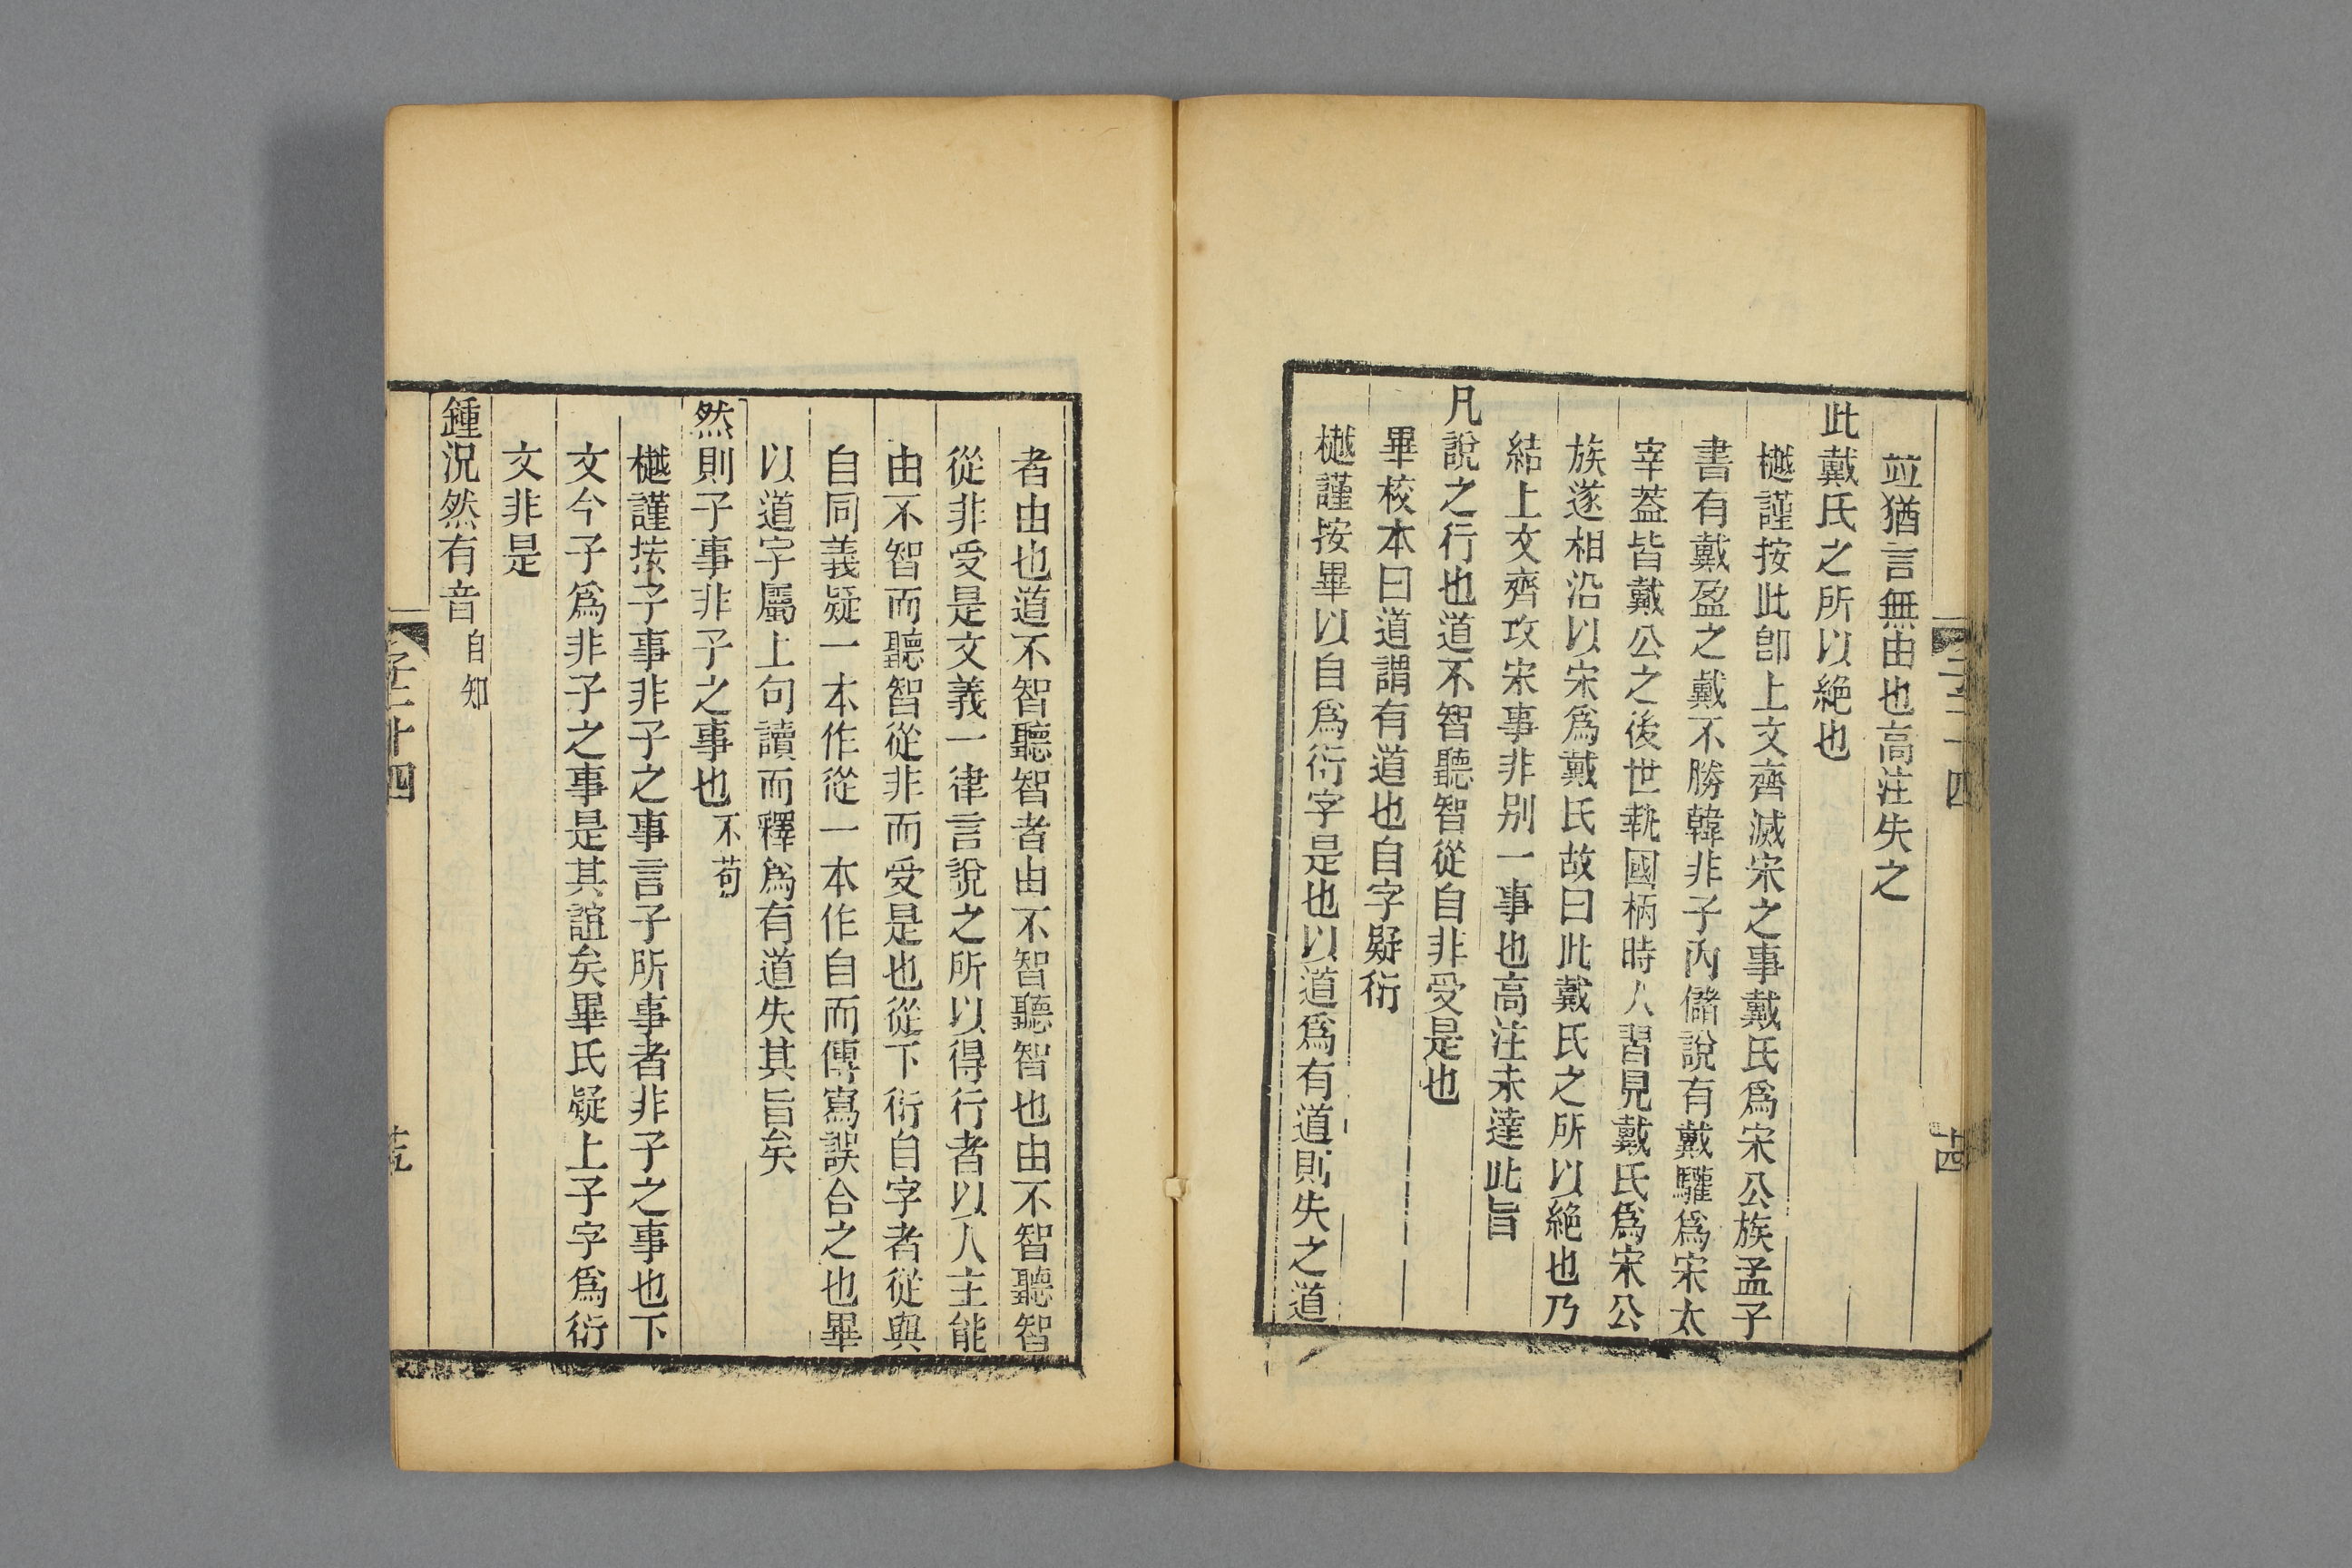 竝猶言無由也高注失之
此戴氏之所以絶也
樾謹按此卽上文齊滅宋之事戴氏爲宋公族孟子
書有戴盈之戴不勝韓非子內儲說有戴驩爲宋太
宰葢皆戴公之後世執國柄時人習見戴氏爲宋公
族遂相沿以宋爲戴氏故曰此戴氏之所以絶也乃
結上文齊攻宋事非別一事也高注未達此旨
凡說之行也道不智聽智從自非受是也
畢校本曰道謂有道也自字疑衍
樾謹按畢以自爲衍字是也以道爲有道則失之道
者由也道不智聽智者由不智聽智也由不智聽智
從非受是文義一律言說之所以得行者以人主能
由不智而聽智從非而受是也從下衍自字者從與
自同義疑一本作從一本作自而傳寫誤合之也畢
以道字屬上句讀而釋爲有道失其旨矣
然則子事非子之事也不苟
樾謹按子事非子之事言子所事者非子之事也下
文今子爲非子之事是其誼矣畢氏疑上子字爲衍
文非是
鍾況然有音自知